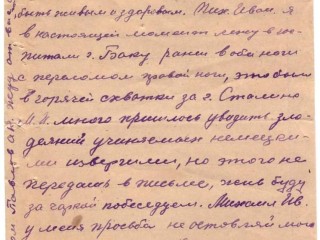 быть живым и здоровым. Мих. Иван. я
в настоящий момент лежу в го-
питали г. Баку ранен в обе ноги
с переломом правой ноги, это было
в горячей схватки за г. Сталино
М.И. много пришлось увидить зло-
деяний учиняемых немецки-
ми извергами, но этого не
передашь в письме, жив буду
за чашкой побеседуем. Михаил Ив.
у меня просьба не оставляй мого